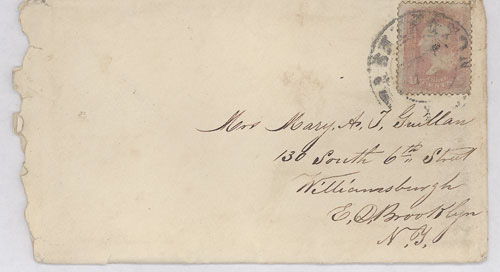 Mrs Mary. A. T. Guillan
130 South 6th Street
Williamsburgh
E. D. Brooklyn
N. Y.